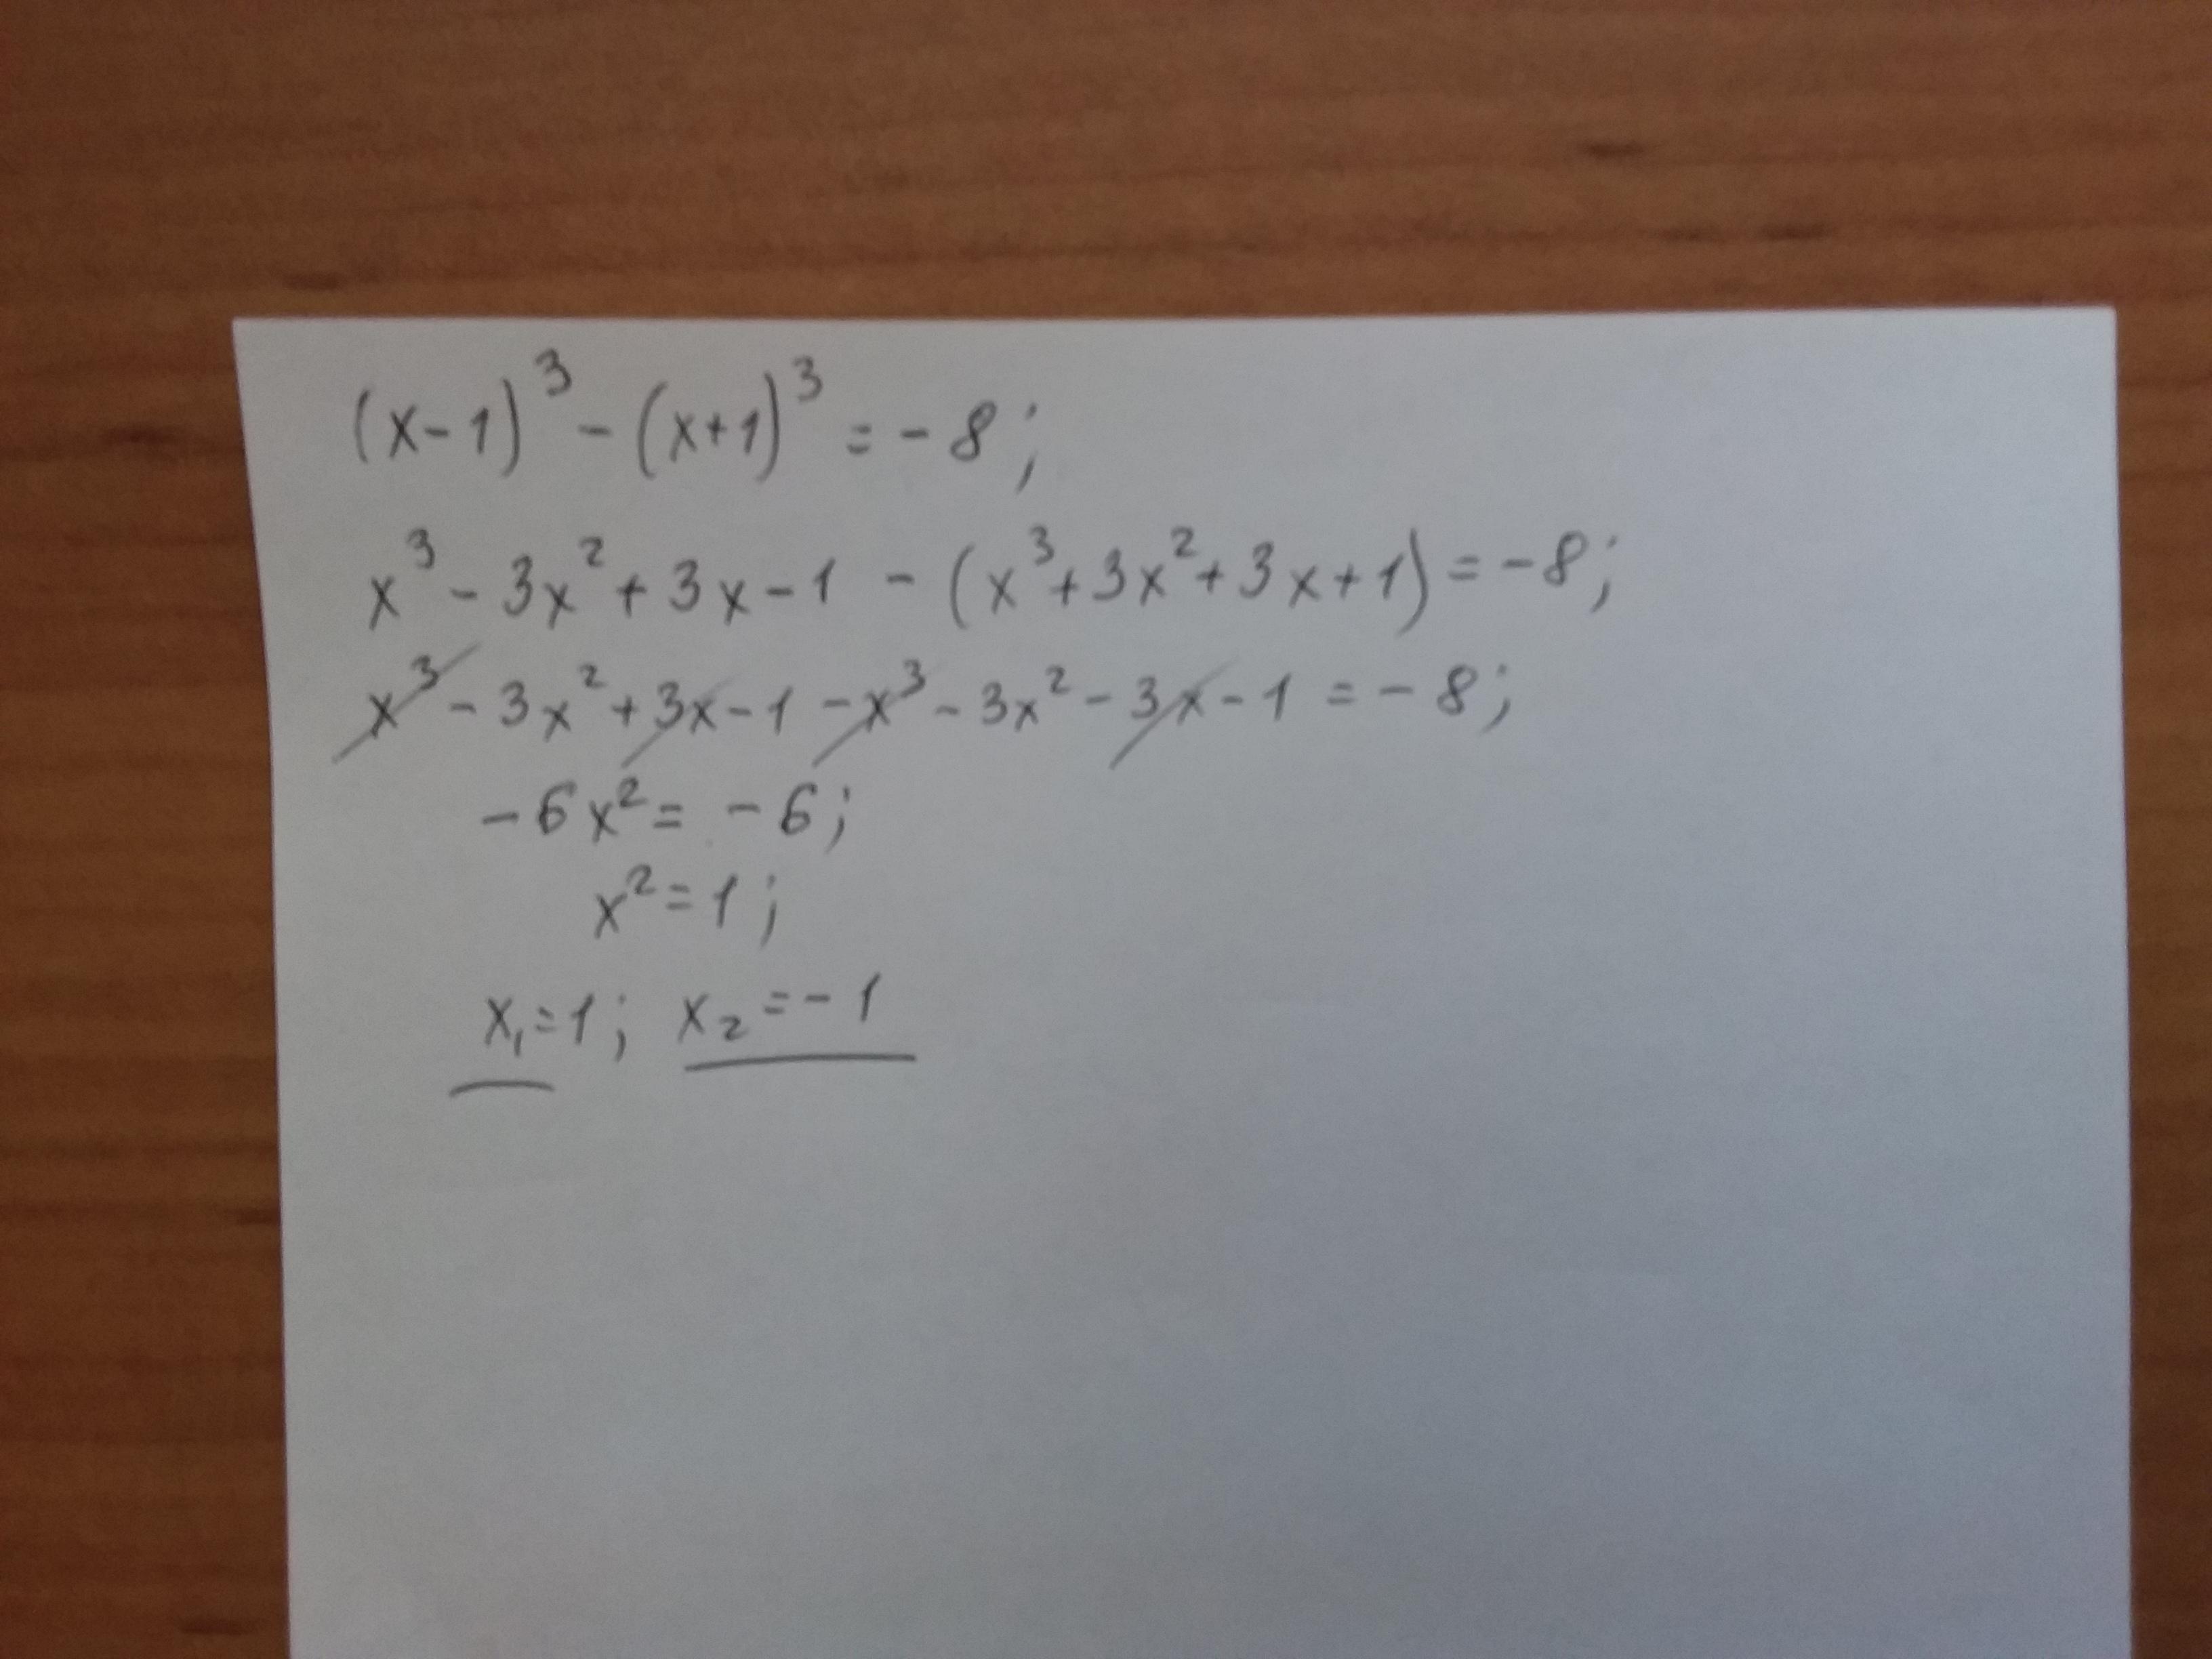 (x-1)³ - (x+1)³ = -8;
x³ - 3x² + 3x - 1 - (x³ + 3x² + 3x + 1) = -8;
x³ - 3x² + 3x - 1 - x³ - 3x² - 3x - 1 = -8;
-6x² = -6;
x² = 1;
x₁ = 1; x₂ = -1